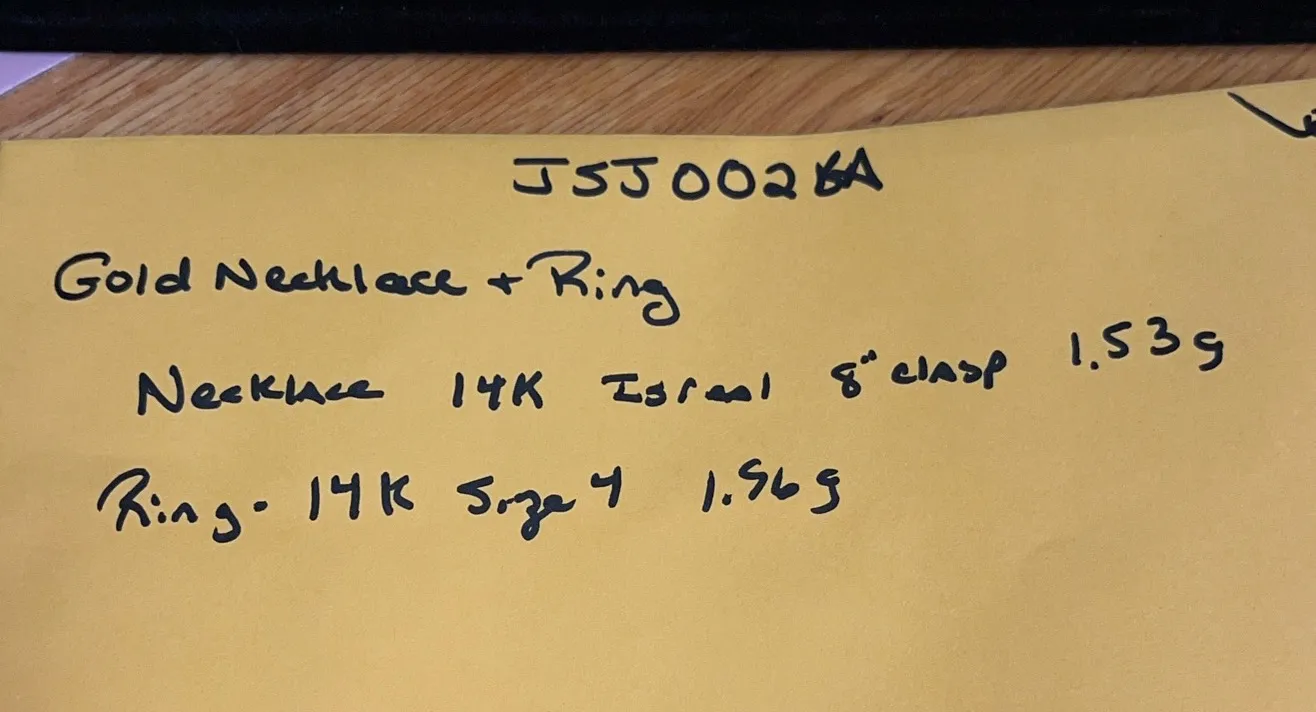 JSJ002
Gold Necklace + Ring
Necklace 14K Isreal 8" clasp 1.53g
Ring. 14K Size 4 1.56g